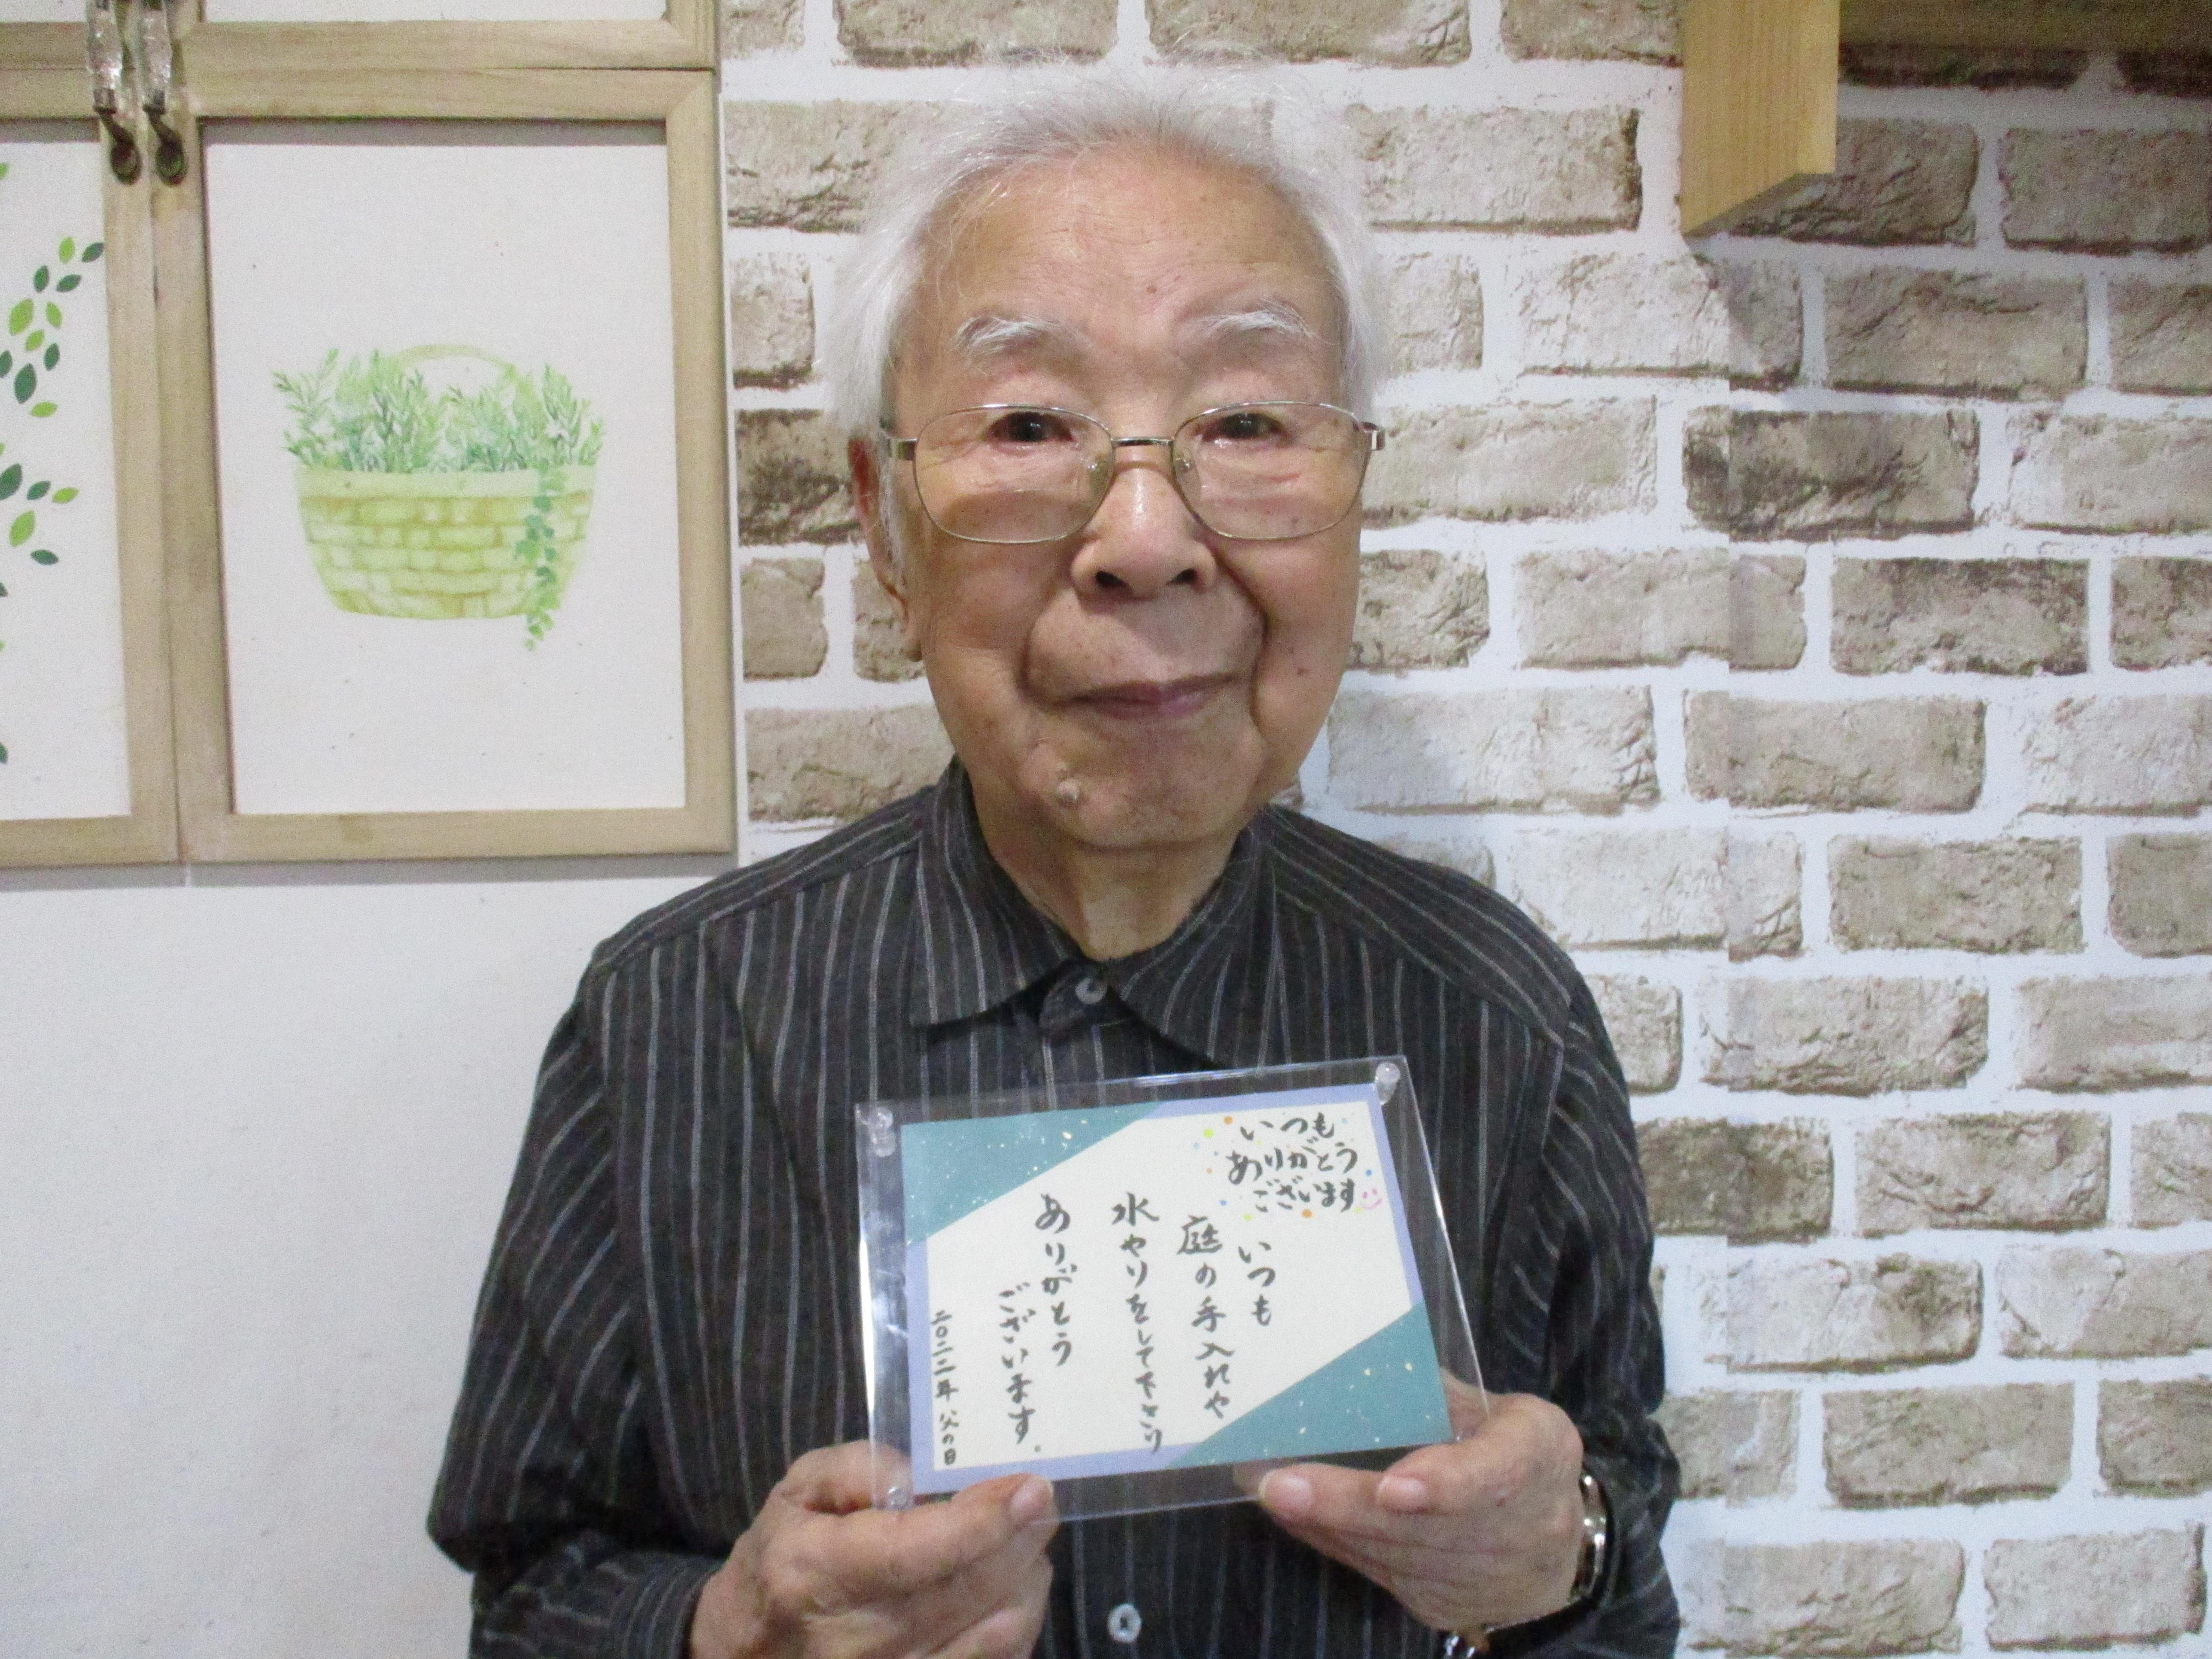 いつも
ありがとう
ございます
いつも
庭の手入れや
水やりをして下さり
ありがとう
ございます。
二〇二二年 父の日